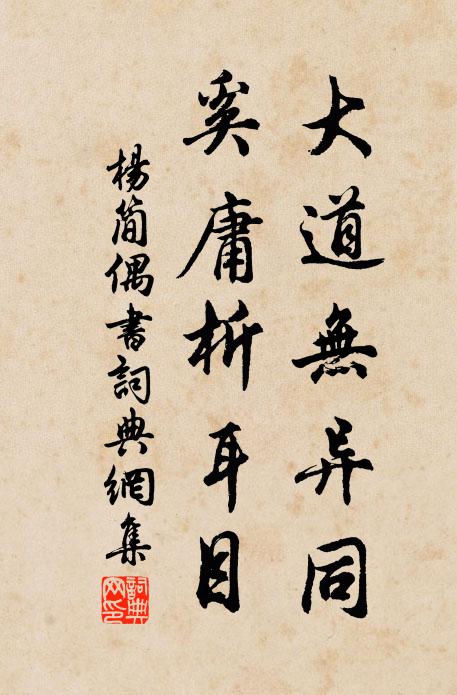 大道無异同
奚庸析耳目
楊简偶書詞典網集
詞典网印